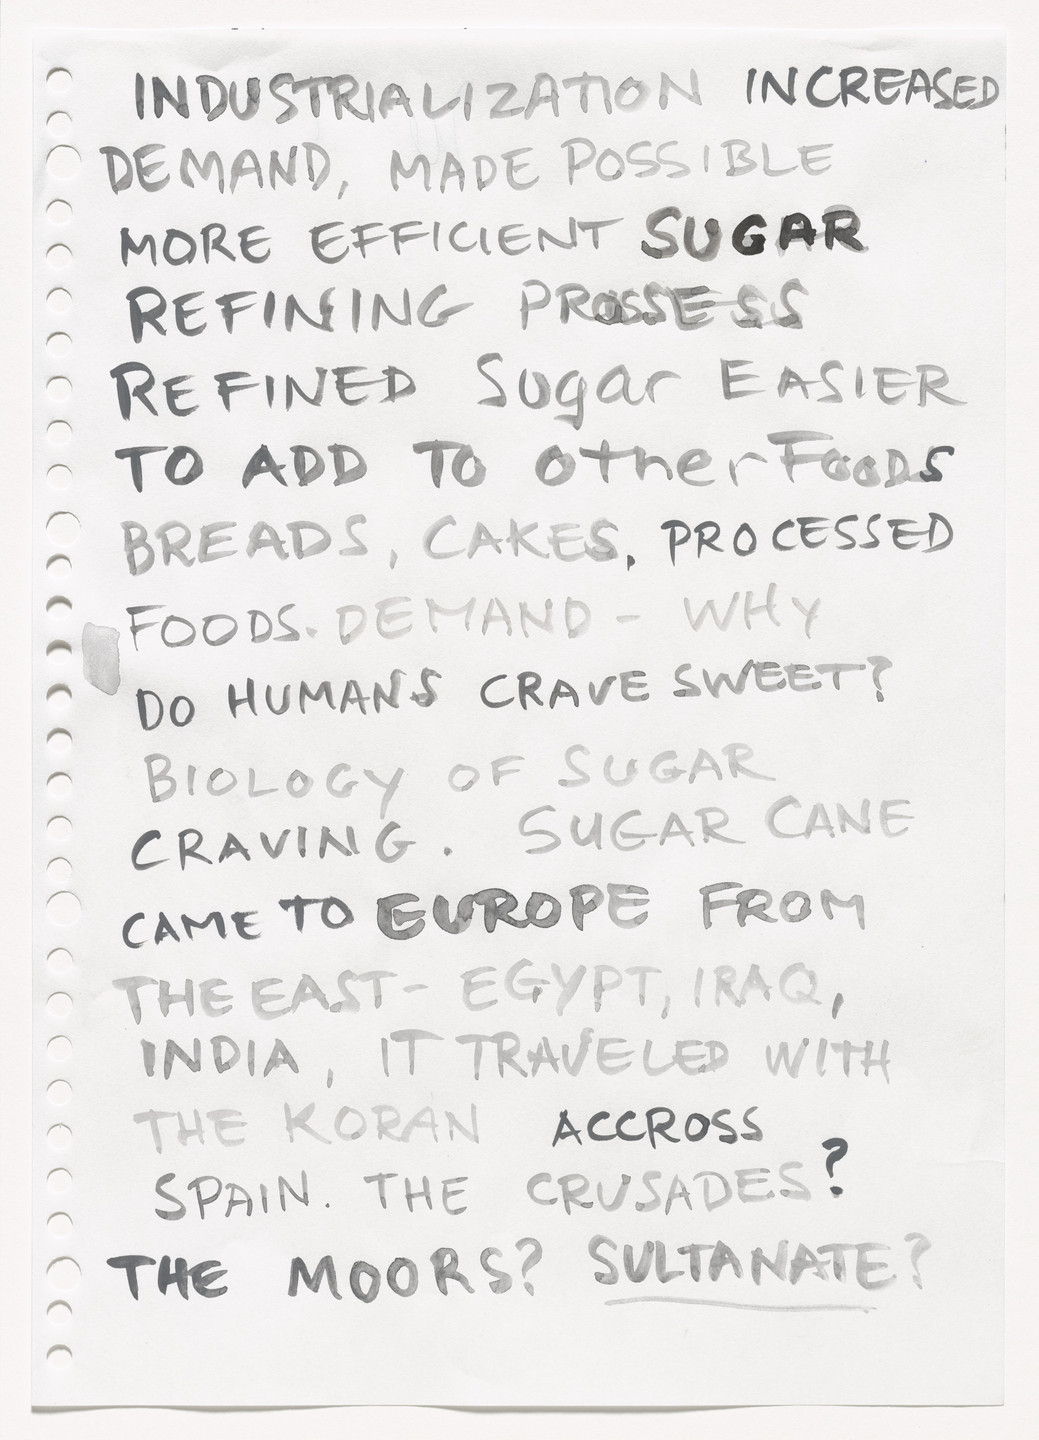 INDUSTRIALIZATION INCREASED
DEMAND, MADE POSSIBLE
MORE EFFICIENT SUGAR
REFINING PROSSESS
REFINED Sugar EASIER
TO ADD TO other FOODS
BREADS, CAKES, PROCESSED
FOODS. DEMAND - WHY
DO HUMANS CRAVE SWEET?
BIOLOGY OF SUGAR
CRAVING. SUGAR CANE
CAME TO EUROPE FROM
THE EAST - EGYPT, IRAQ,
INDIA, IT TRAVELED WITH
THE KORAN ACCROSS
SPAIN. THE CRUSADES?
THE MOORS? SULTANATE?